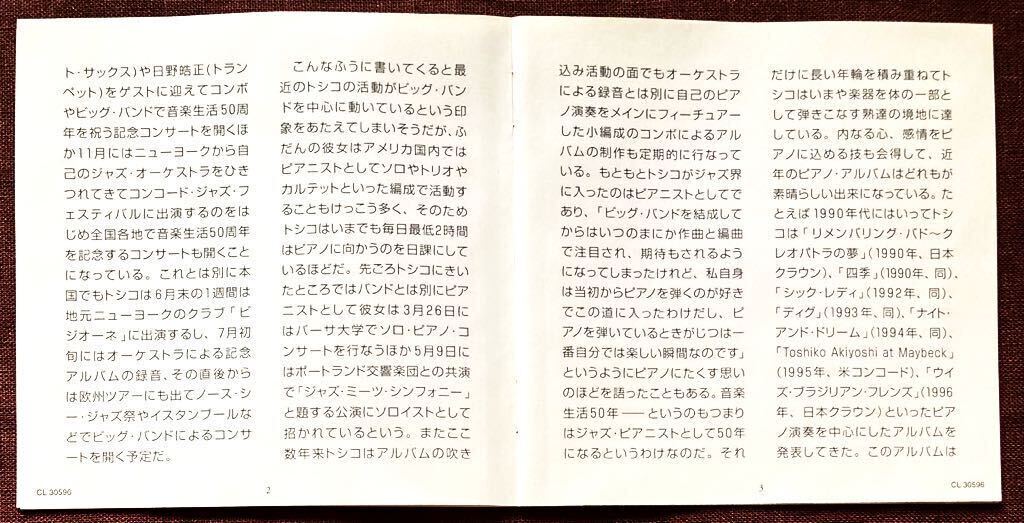 ト・サックス)や日野皓正(トラン
ペット)をゲストに迎えてコンボ
やビッグ・バンドで音楽生活50周
年を祝う記念コンサートを開くほ
か11月にはニューヨークから自
己のジャズ・オーケストラをひき
つれてきてコンコード・ジャズ・フ
ェスティバルに出演するのをは
じめ全国各地で音楽生活50周年
を記念するコンサートも開くこと
になっている。これとは別に本
国でもトシコは6月末の1週間は
地元ニューヨークのクラブ「ビ
ジオーネ」に出演するし、7月初
旬にはオーケストラによる記念
アルバムの録音、その直後から
は欧州ツアーにも出てノース・シ
ー・ジャズ祭やイスタンブールな
どでビッグ・バンドによるコンサ
ートを開く予定だ。
こんなふうに書いてくると最
近のトシコの活動がビッグ・バン
ドを中心に動いているという印
象をあたえてしまいそうだが、ふ
だんの彼女はアメリカ国内では
ピアニストとしてソロやトリオや
カルテットといった編成で活動す
ることもけっこう多く、そのため
トシコはいまでも毎日最低2時間
はピアノに向かうのを日課にして
いるほどだ。先ごろトシコにきい
たところではバンドとは別にピア
ニストとして彼女は3月26日に
はバーサ大学でソロ・ピアノ・コ
ンサートを行なうほか5月9日に
はポートランド交響楽団との共演
で「ジャズ・ミーツ・シンフォニー」
と題する公演にソロイストとして
招かれているという。またここ
数年来トシコはアルバムの吹き
CL 30596
2
込み活動の面でもオーケストラ
による録音とは別に自己のピア
ノ演奏をメインにフィーチュアー
した小編成のコンボによるアル
バムの制作も定期的に行なって
いる。もともとトシコがジャズ界
に入ったのはピアニストとしてで
あり、「ビッグ・バンドを結成して
からはいつのまにか作曲と編曲
で注目され、期待もされるよう
になってしまったけれど、私自身
は当初からピアノを弾くのが好き
でこの道に入ったわけだし、ピ
アノを弾いているときがじつは一
番自分では楽しい瞬間なのです」
というようにピアノにたくす思い
のほどを語ったこともある。音楽
生活50年――というのもつまり
はジャズ・ピアニストとして50年
になるというわけなのだ。それ
だけに長い年輪を積み重ねてト
シコはいまや楽器を体の一部と
して弾きこなす熟達の境地に達
している。内なる心、感情をピ
アノに込める技も会得して、近
年のピアノ・アルバムはどれもが
素晴らしい出来になっている。た
とえば1990年代にはいってトシ
コは「リメンバリング・バド〜ク
レオパトラの夢」(1990年、日本
クラウン)、「四季」(1990年、同)、
「シック・レディ」(1992年、同)、
「ディグ」(1993年、同)、「ナイト・
アンド・ドリーム」(1994年、同)、
「Toshiko Akiyoshi at Maybeck」
(1995年、米コンコード)、「ウイ
ズ・ブラジリアン・フレンズ」(1996
年、日本クラウン)といったピア
ノ演奏を中心にしたアルバムを
発表してきた。このアルバムは
3
CL 30596